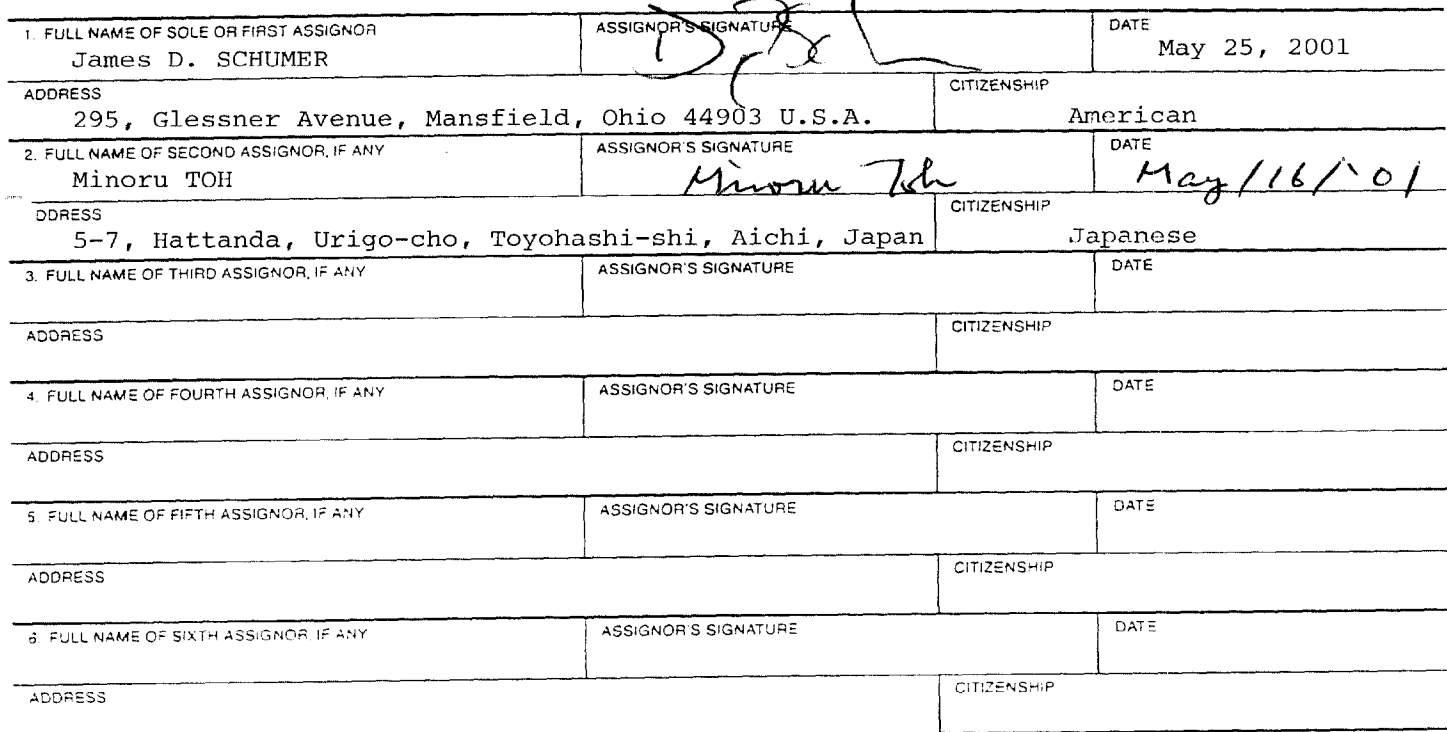 1. FULL NAME OF SOLE OR FIRST ASSIGNOR ASSIGNOR'S SIGNATURE DATE
James D. SCHUMER May 25, 2001
ADDRESS CITIZENSHIP
295, Glessner Avenue, Mansfield, Ohio 44903 U.S.A. American
2. FULL NAME OF SECOND ASSIGNOR, IF ANY ASSIGNOR'S SIGNATURE DATE
Minoru TOH Minoru Toh May/16/'01
DDRESS CITIZENSHIP
5-7, Hattanda, Urigo-cho, Toyohashi-shi, Aichi, Japan Japanese
3. FULL NAME OF THIRD ASSIGNOR, IF ANY ASSIGNOR'S SIGNATURE DATE
ADDRESS CITIZENSHIP
4. FULL NAME OF FOURTH ASSIGNOR, IF ANY ASSIGNOR'S SIGNATURE DATE
ADDRESS CITIZENSHIP
5. FULL NAME OF FIFTH ASSIGNOR, IF ANY ASSIGNOR'S SIGNATURE DATE
ADDRESS CITIZENSHIP
6. FULL NAME OF SIXTH ASSIGNOR, IF ANY ASSIGNOR'S SIGNATURE DATE
ADDRESS CITIZENSHIP